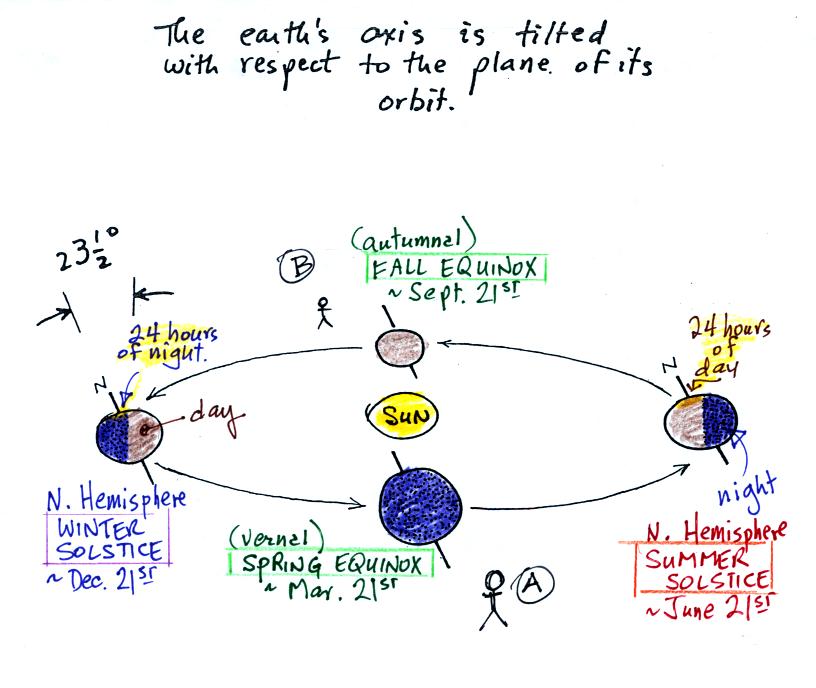 The earth's axis is tilted
with respect to the plane of its
orbit.
23½°
B
(autumnal)
FALL EQUINOX
~ Sept. 21st
24 hours
of night.
24 hours
of
day
N
N
day
SUN
night
N. Hemisphere
WINTER
SOLSTICE
~ Dec. 21st
(vernal)
SPRING EQUINOX
~ Mar. 21st
A
N. Hemisphere
SUMMER
SOLSTICE
~ June 21st